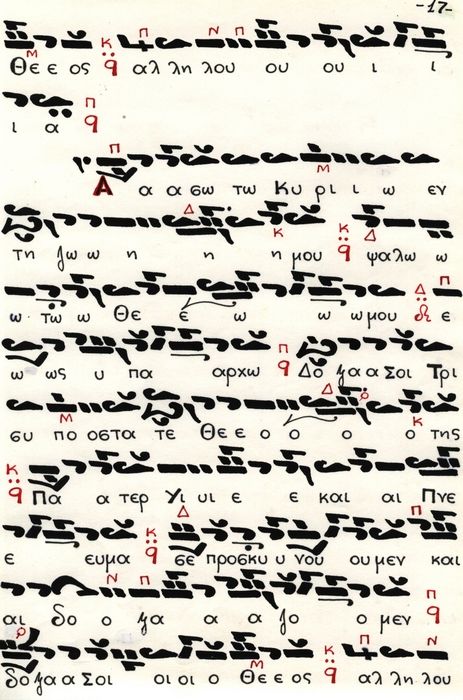 -17-
Θε ε ος αλ λη λου ου ου ι ι
ι α
Α α α σω τω Κυ ρι ι ω εν
τη ζω ω η η η μου ψαλω ω
ω τω ω Θε ε ω ω ω μου ε
ω ως υ πα αρχω Δο ξα α Σοι Τρι
συ πο οστα τε Θε ε ο ο ο ο της
Πα α τερ Υι υι ε ε και αι Πνε
ε ευμα σε προσκυ υ νου ου μεν και
αι δο ο ξα α α ζο ο μεν
δο ξα α Σοι οι οι ο Θε ε ος αλ λη λου